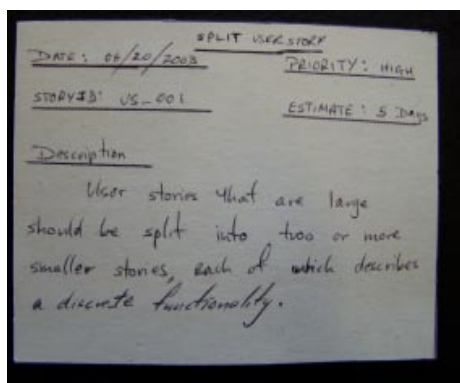 SPLIT USER STORY
DATE: 06/20/2003
PRIORITY: HIGH
STORYID: US_001
ESTIMATE: 5 Days
Description
User stories that are large
should be split into two or more
smaller stories, each of which describes
a discrete functionality.